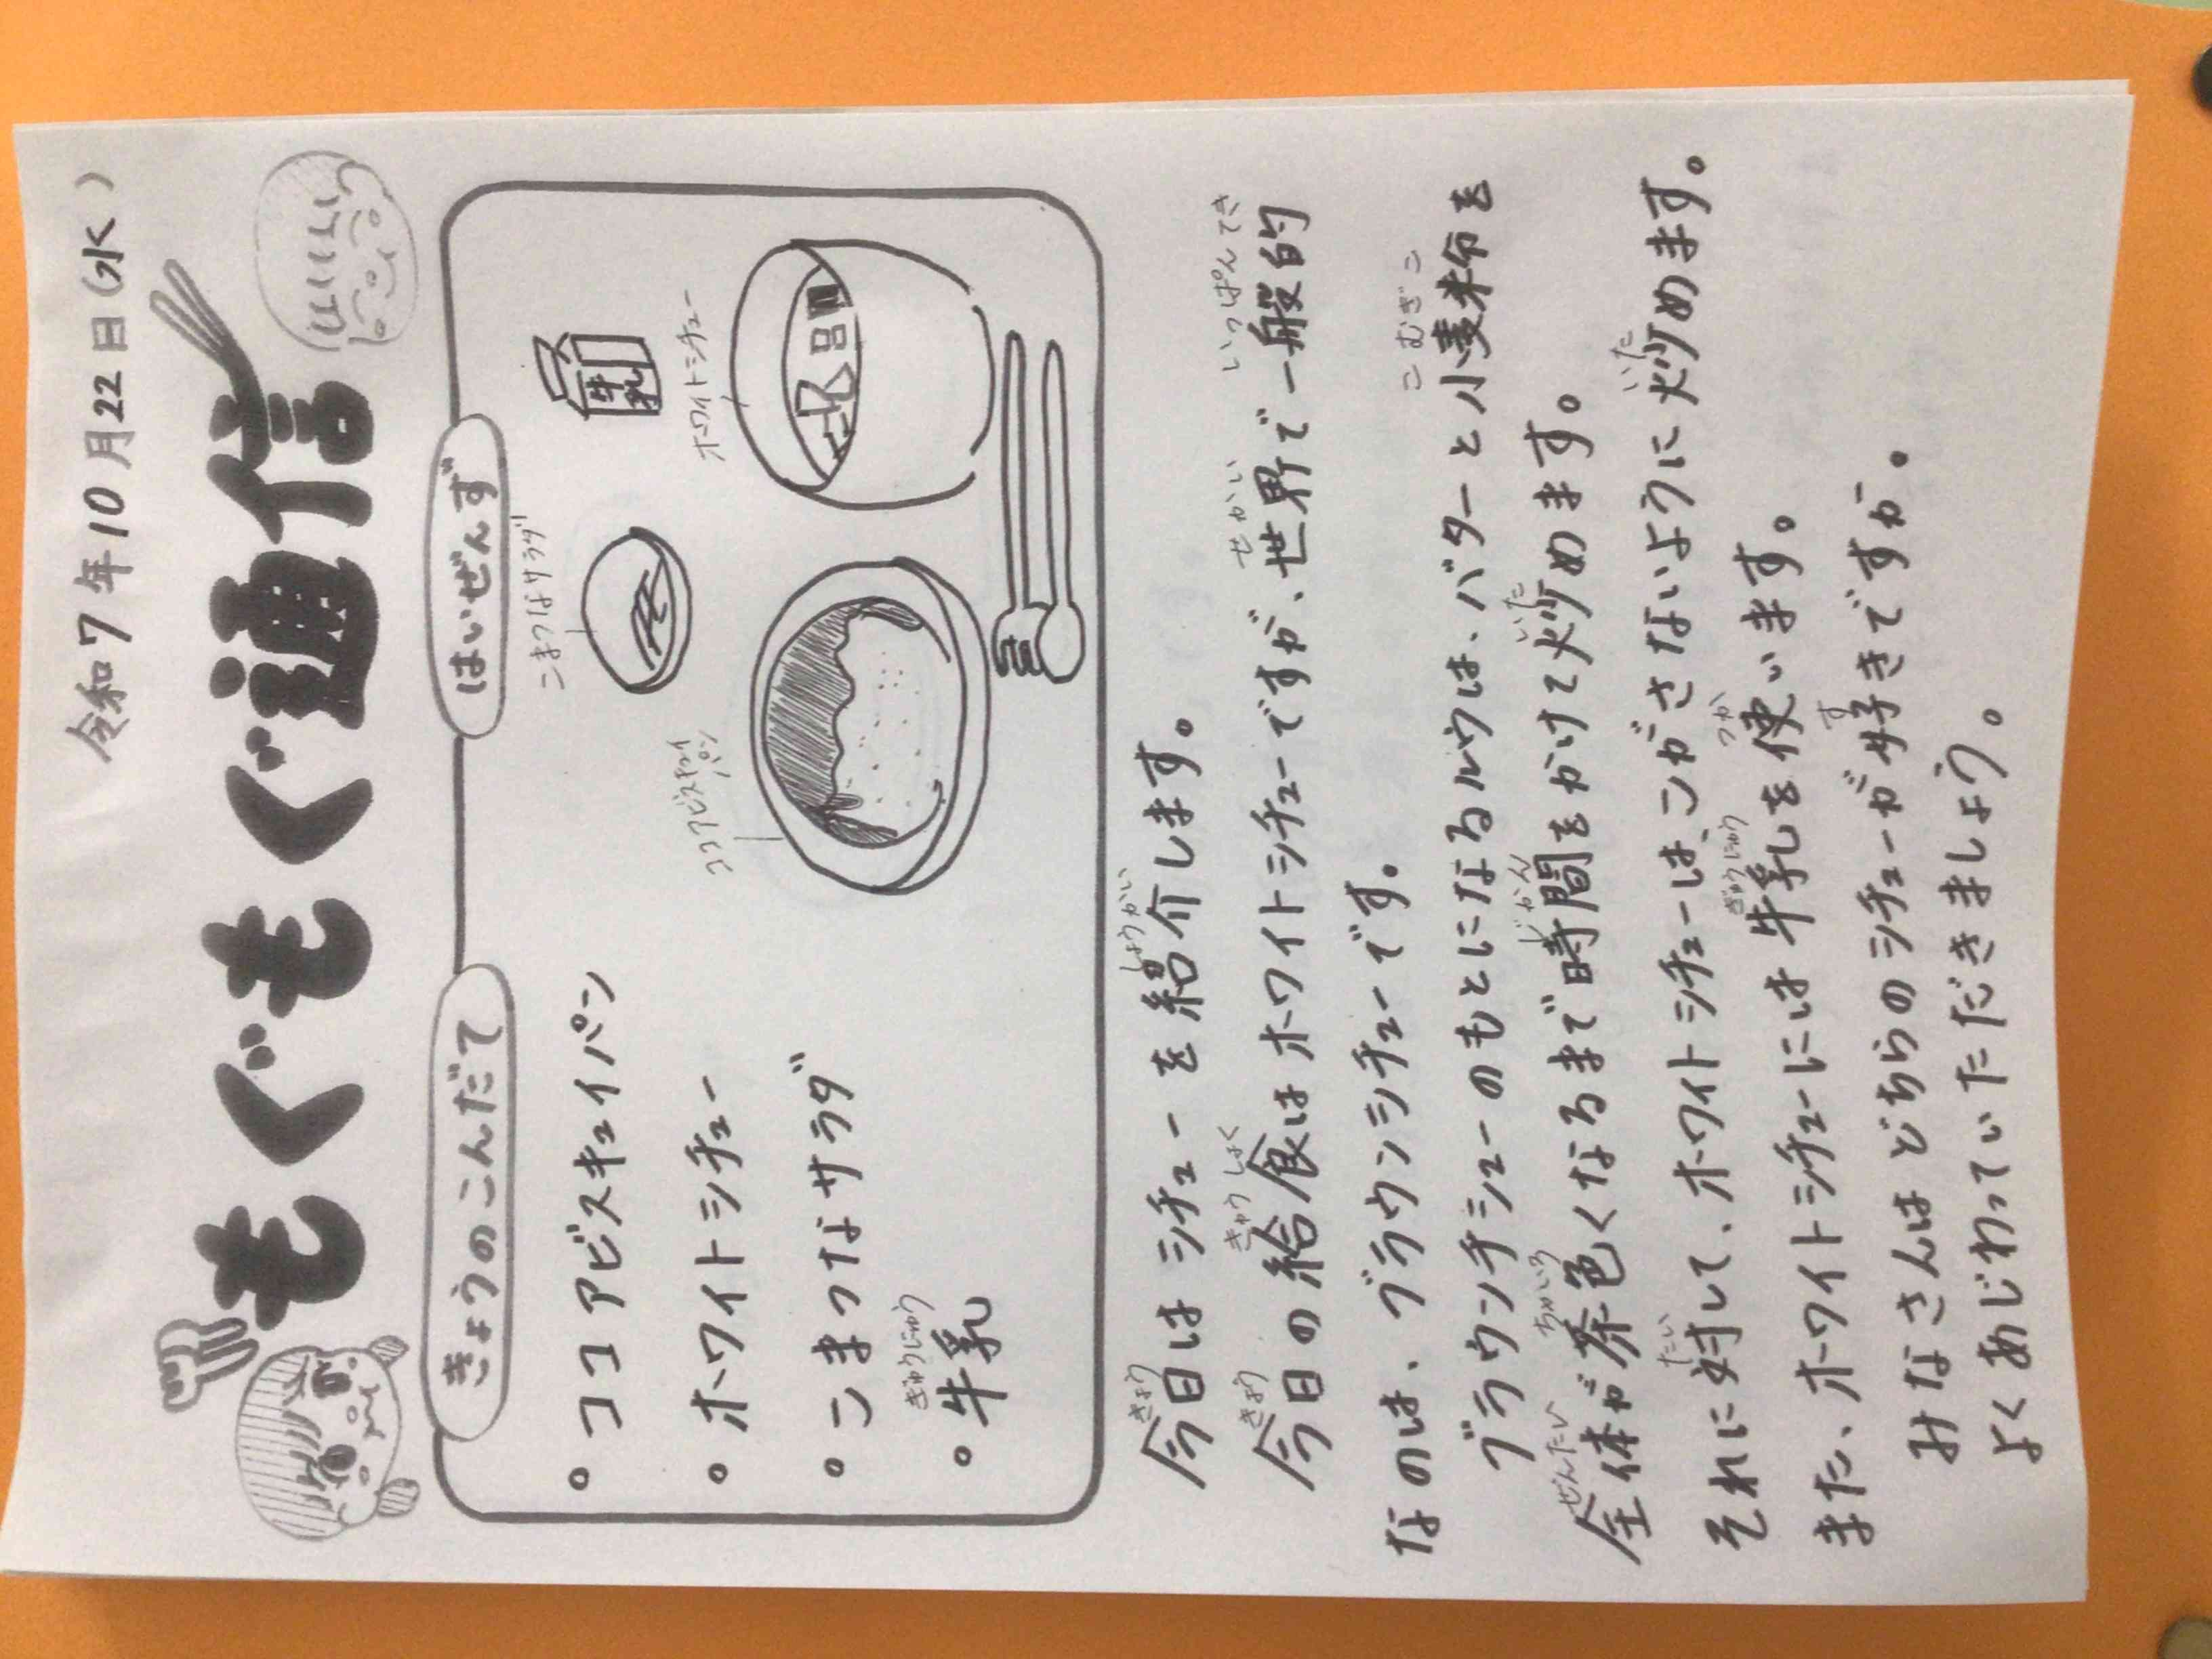 令和7年10月22日(水)
もぐもぐ通信
きょうのこんだて
・ココアビスキュイパン
・ホワイトシチュー
・こまつなサラダ
ぎゅうにゅう
・牛乳
はいぜんず
こまつなサラダ
牛乳
ホワイトシチュー
ココアビスキュイパン
きょう しょうかい
今日はシチューを紹介します。
きょう きゅうしょく せかい いっぱんてき
今日の給食はホワイトシチューですが、世界で一般的
なのは、ブラウンシチューです。
こむぎこ
ブラウンチシューのもとになるルウは、バターと小麦粉を
ぜんたい ちゃいろ じかん いた
全体が茶色くなるまで時間をかけて炒めます。
たい いた
それに対して、ホワイトシチューは、こがさないように炒めます。
ぎゅうにゅう つか
また、ホワイトシチューには牛乳を使います。
す
みなさんはどちらのシチューが好きですか。
よくあじわっていただきましょう。